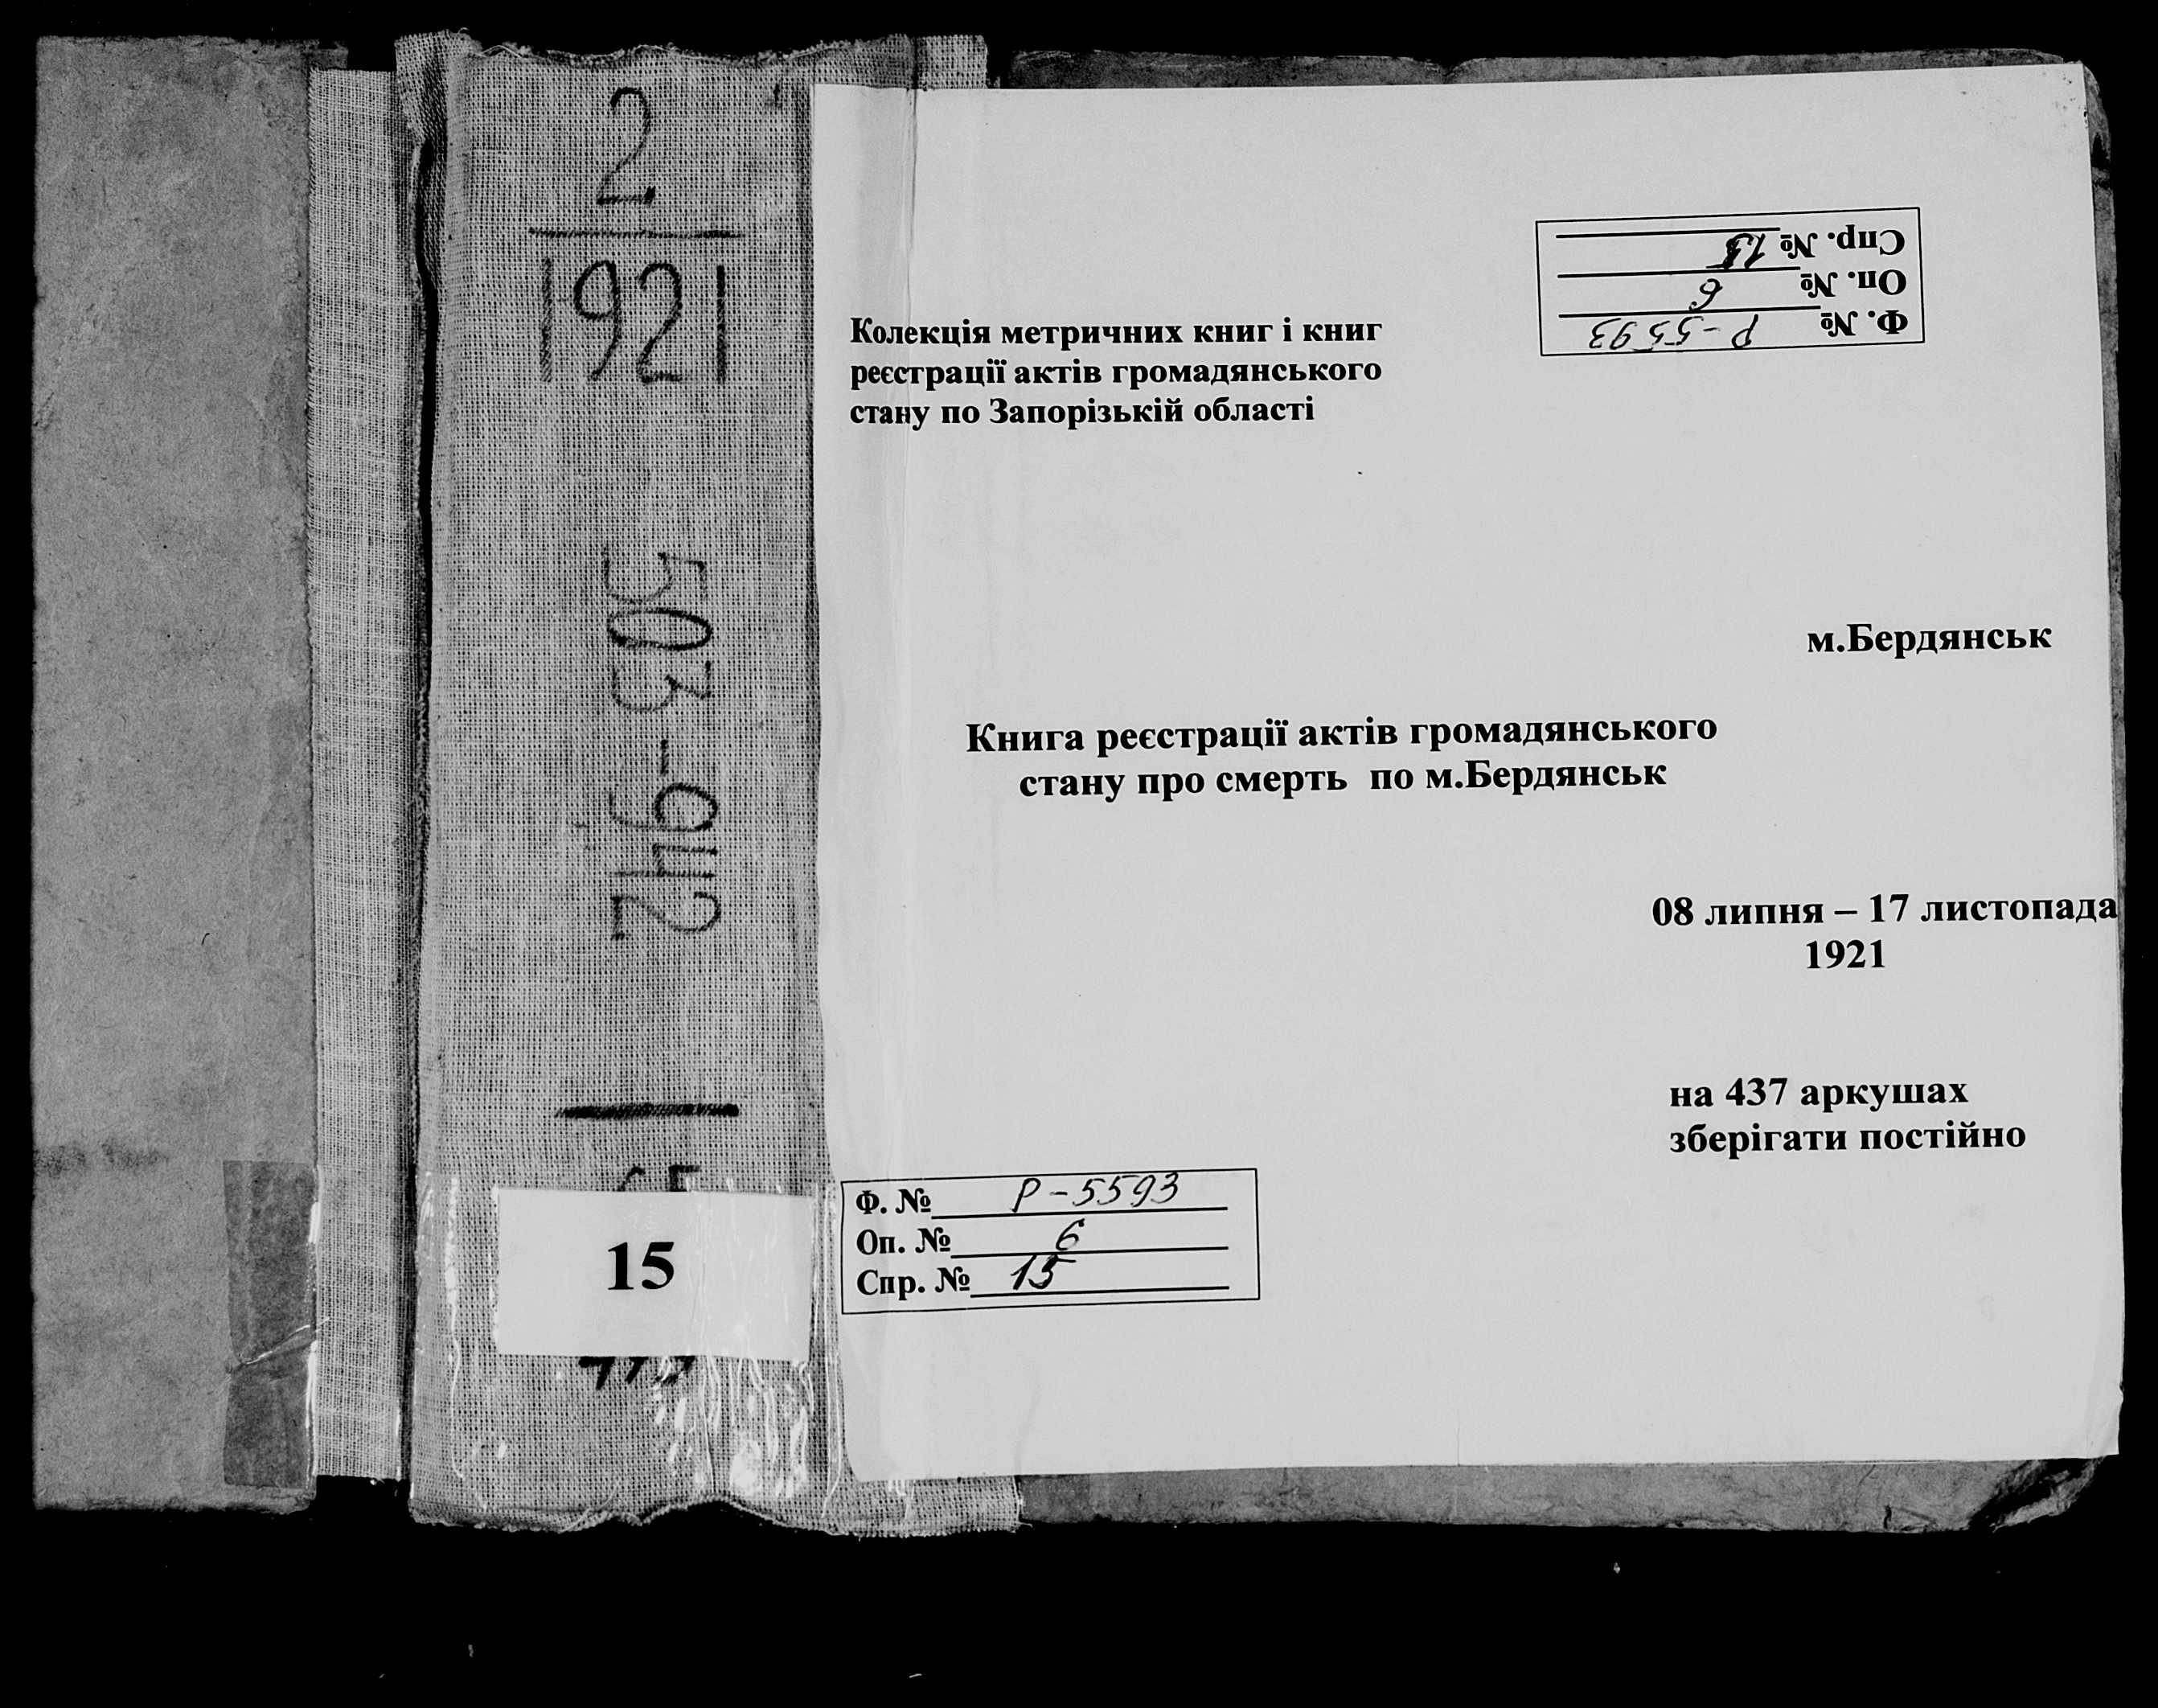 2
1921
503-942
15
Спр. № 15
Оп. № 6
Ф. № Р-5593
Колекція метричних книг і книг
реєстрації актів громадянського
стану по Запорізькій області
м.Бердянськ
Книга реєстрації актів громадянського
стану про смерть по м.Бердянськ
08 липня – 17 листопада
1921
на 437 аркушах
зберігати постійно
Ф. № Р-5593
Оп. № 6
Спр. № 15